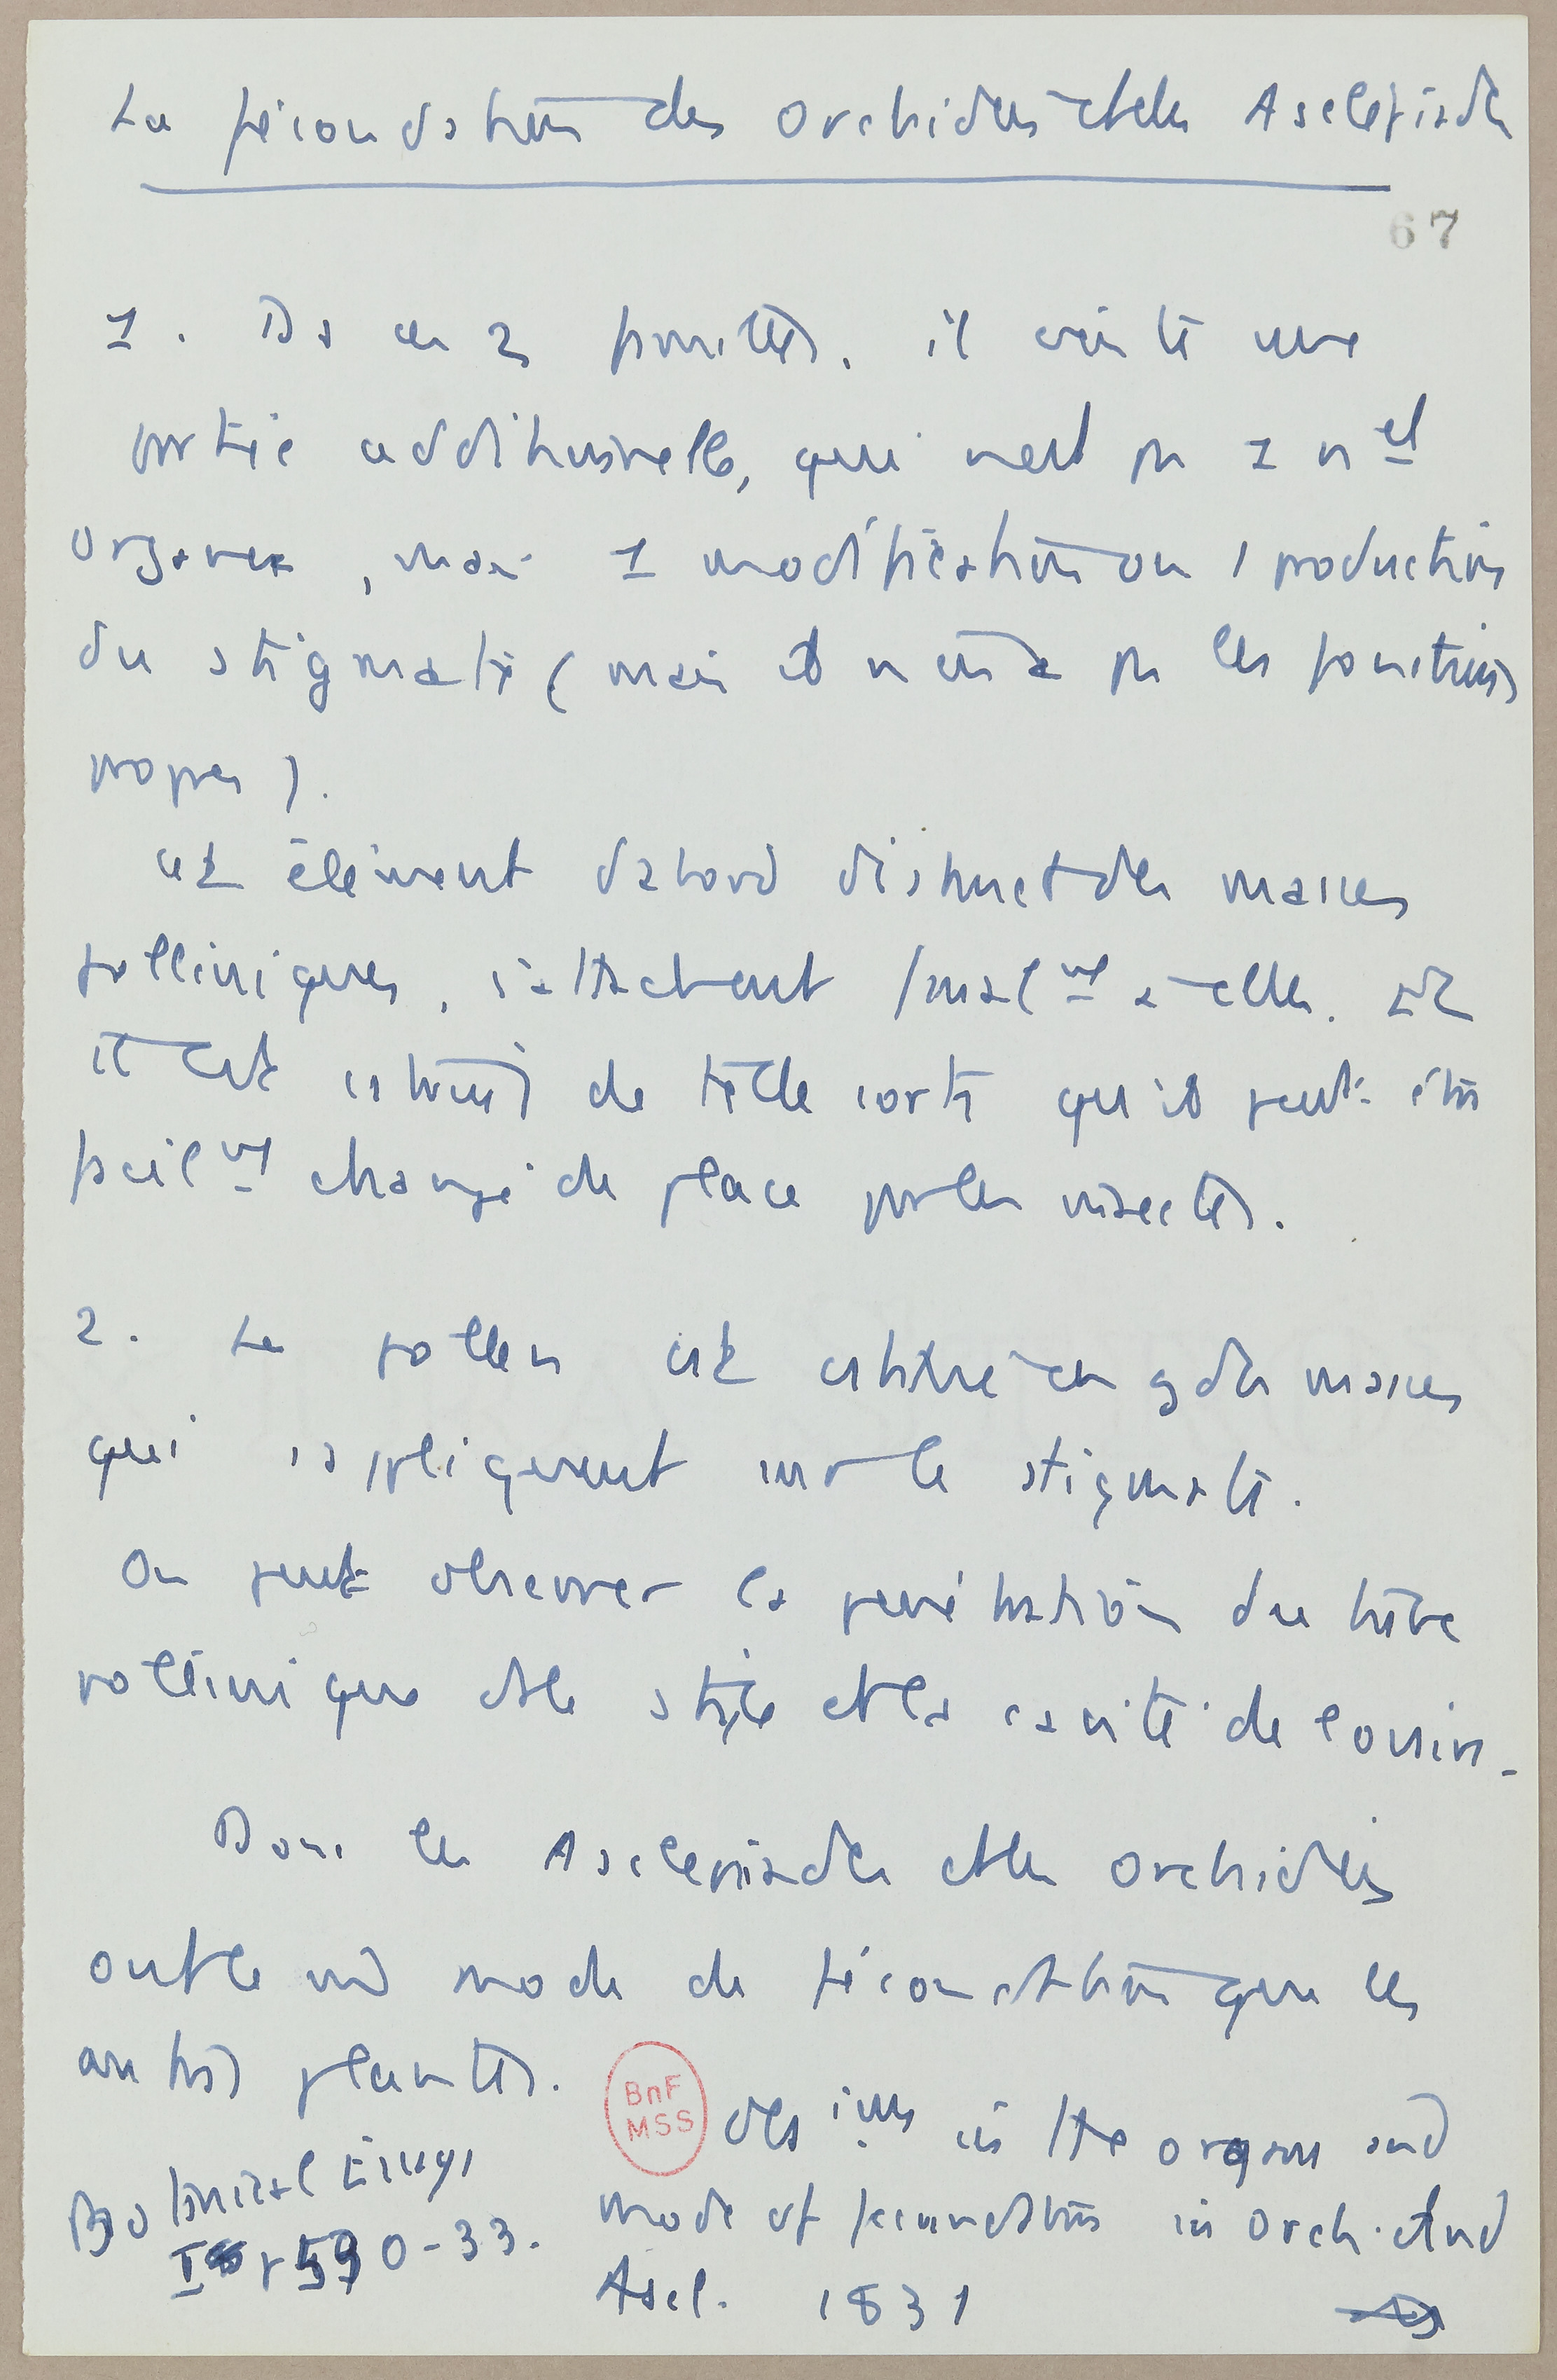 La fécondation des Orchidées et des Asclépiades
67
1. Ds ces 2 familles, il existe une
partie additionnelle, qui n'est pas 1 nvel
organe, mais 1 modification ou 1 production
du stigmate (mais il n'en a pas les fonctions
propres).
Cet élément d'abord distinct des masses
polliniques, s'attachent finalmt à elles. Et
il est situé de telle sorte qu'il peut être
facilmt changé de place par les insectes.
2. Le pollen est en des masses
qui s'appliquent sur le stigmate.
On peut observer la pénétration du tube
pollinique ds le style et ds la cavité de l'ovaire.
Donc les Asclépiades et les Orchidées
ont le md mode de fécondation que les
autres plantes.
BnF
MSS
Obs in the organs and
mode of fecundation in Orch. and
Ascl. 1831
Botanical
I p 590-33.